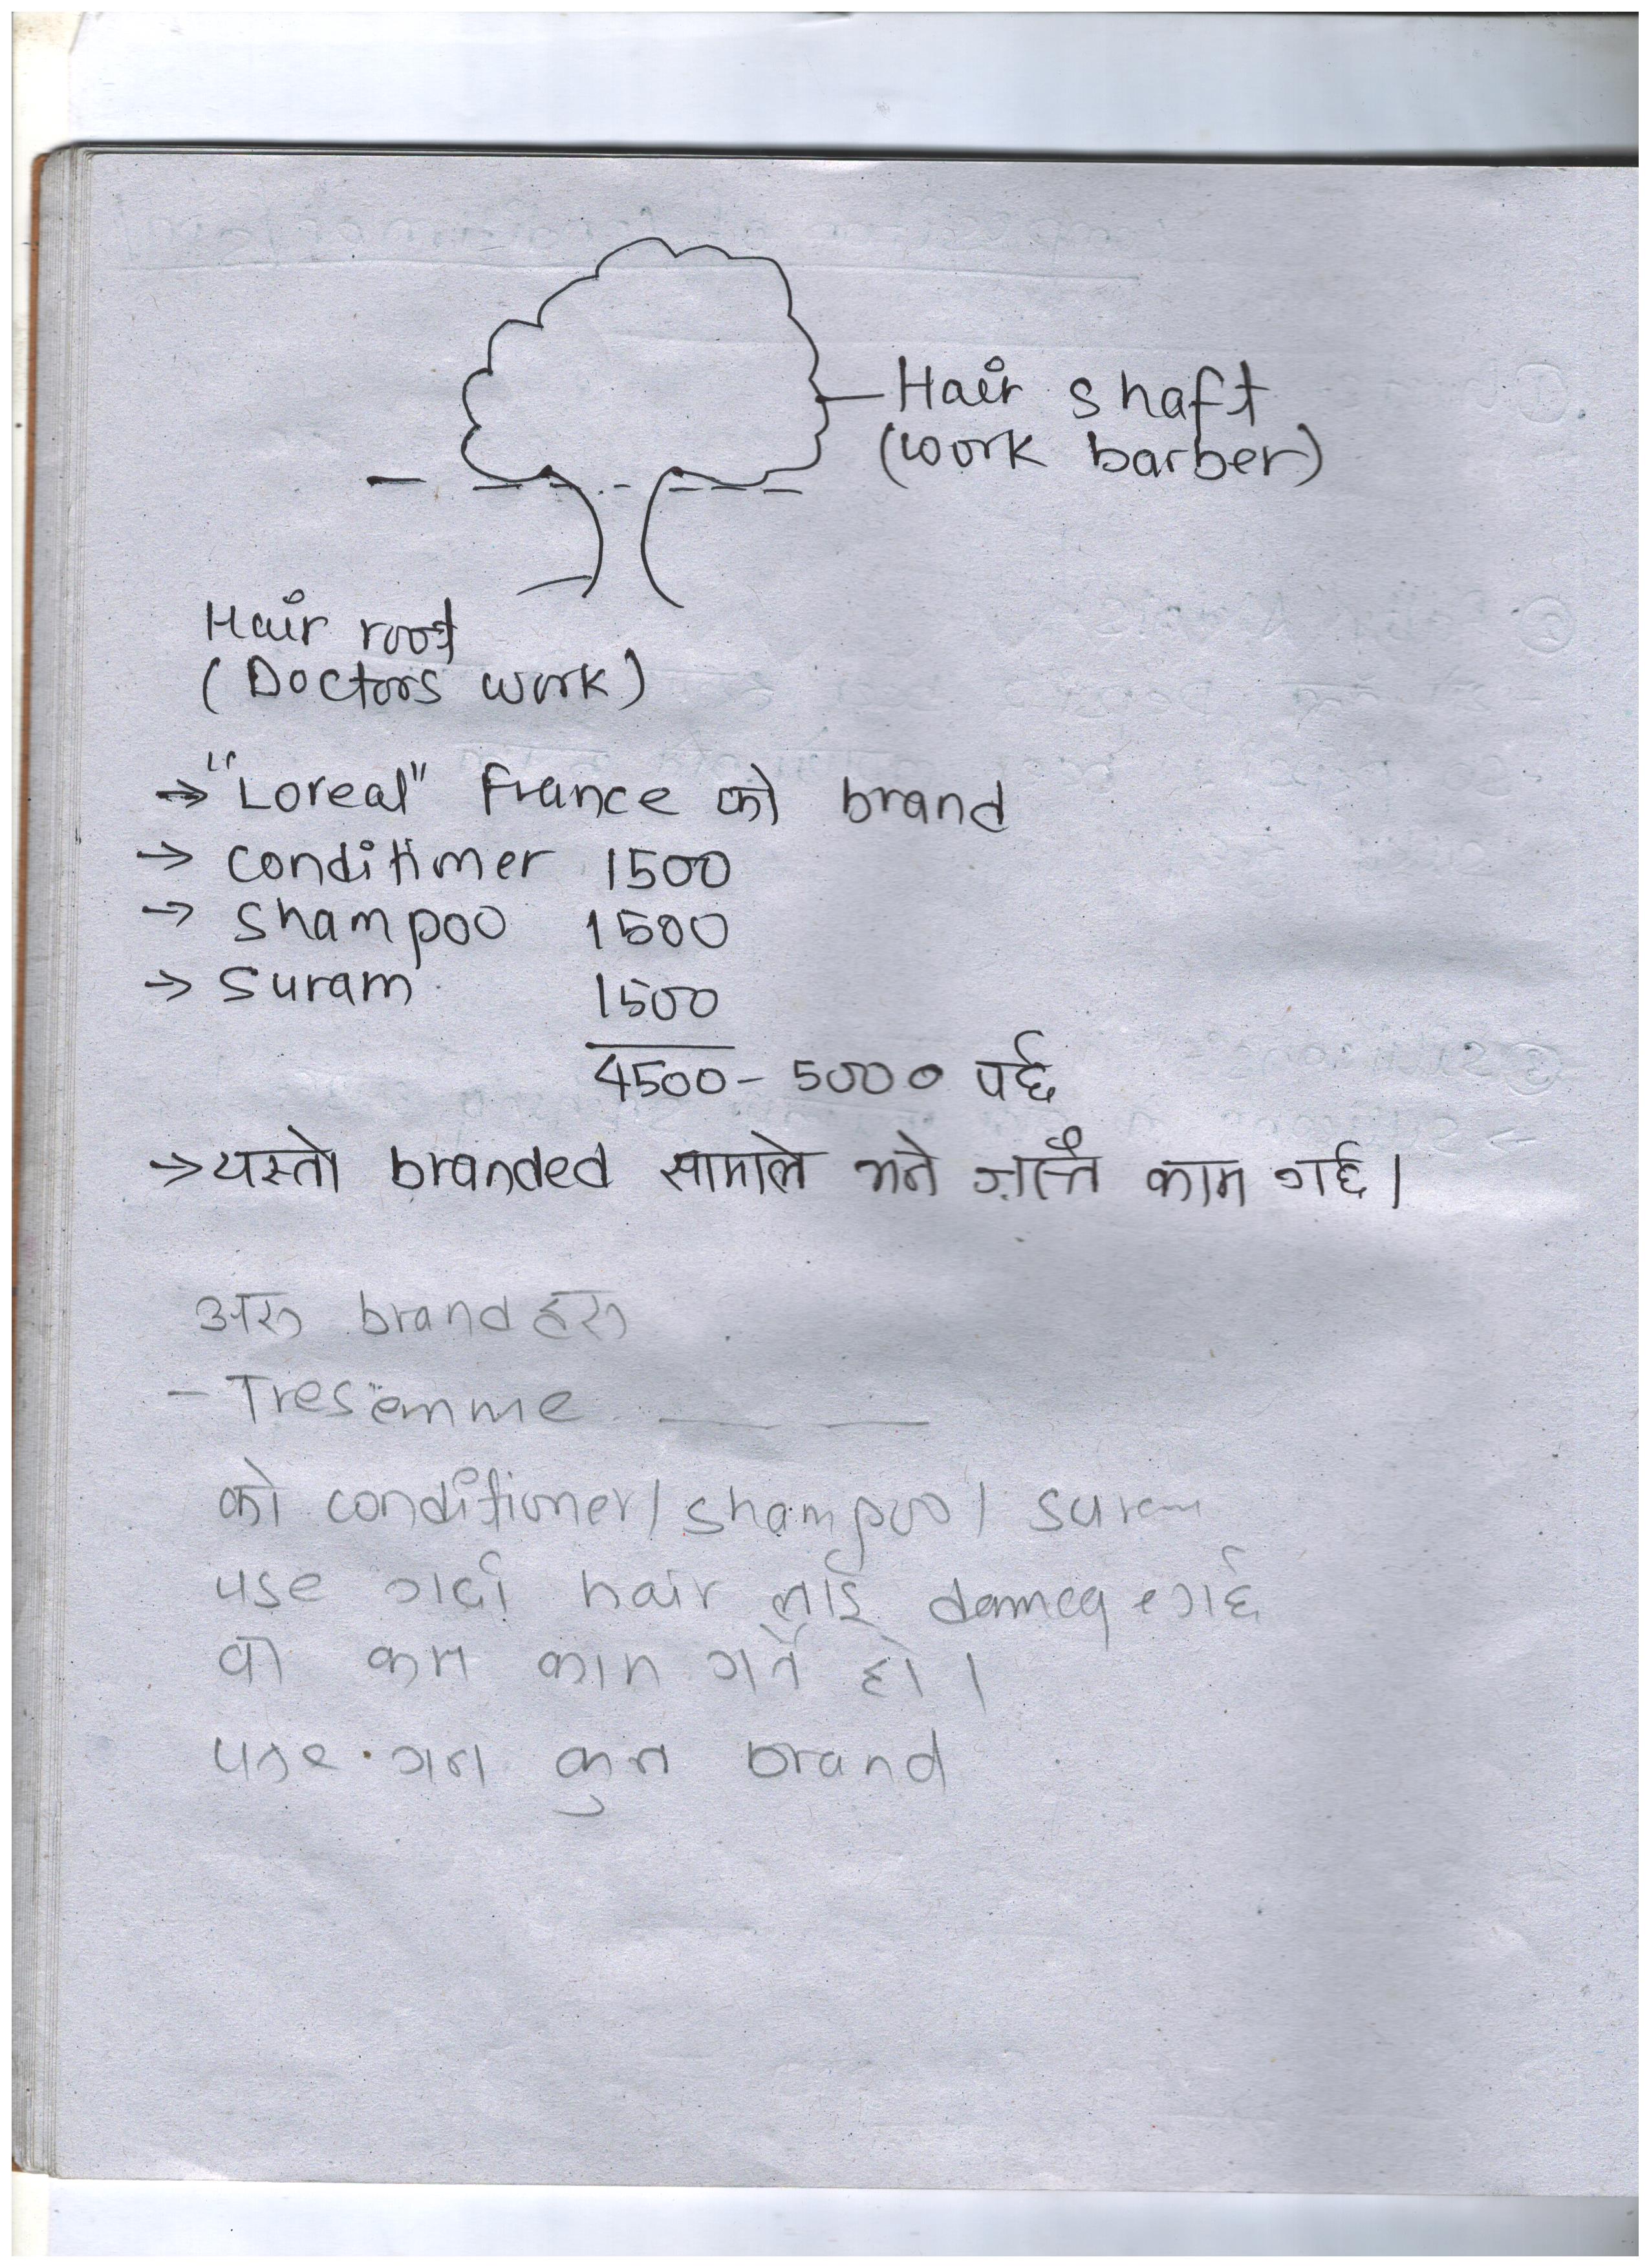 Hair shaft
(work barber)
Hair root
(Doctors work)
→ "Loreal" France को brand
→ conditioner 1500
→ shampoo 1500
→ suram 1500
4500 - 5000 पर्छ
→ यस्तो branded सामाले भने काम गर्छ।
अरु brand हरु
- Tresemme
को conditioner / shampoo / suram
use गर्दा hair लाई गर्छ
वा कम काम गर्ने हो।
use गर्न कुन brand